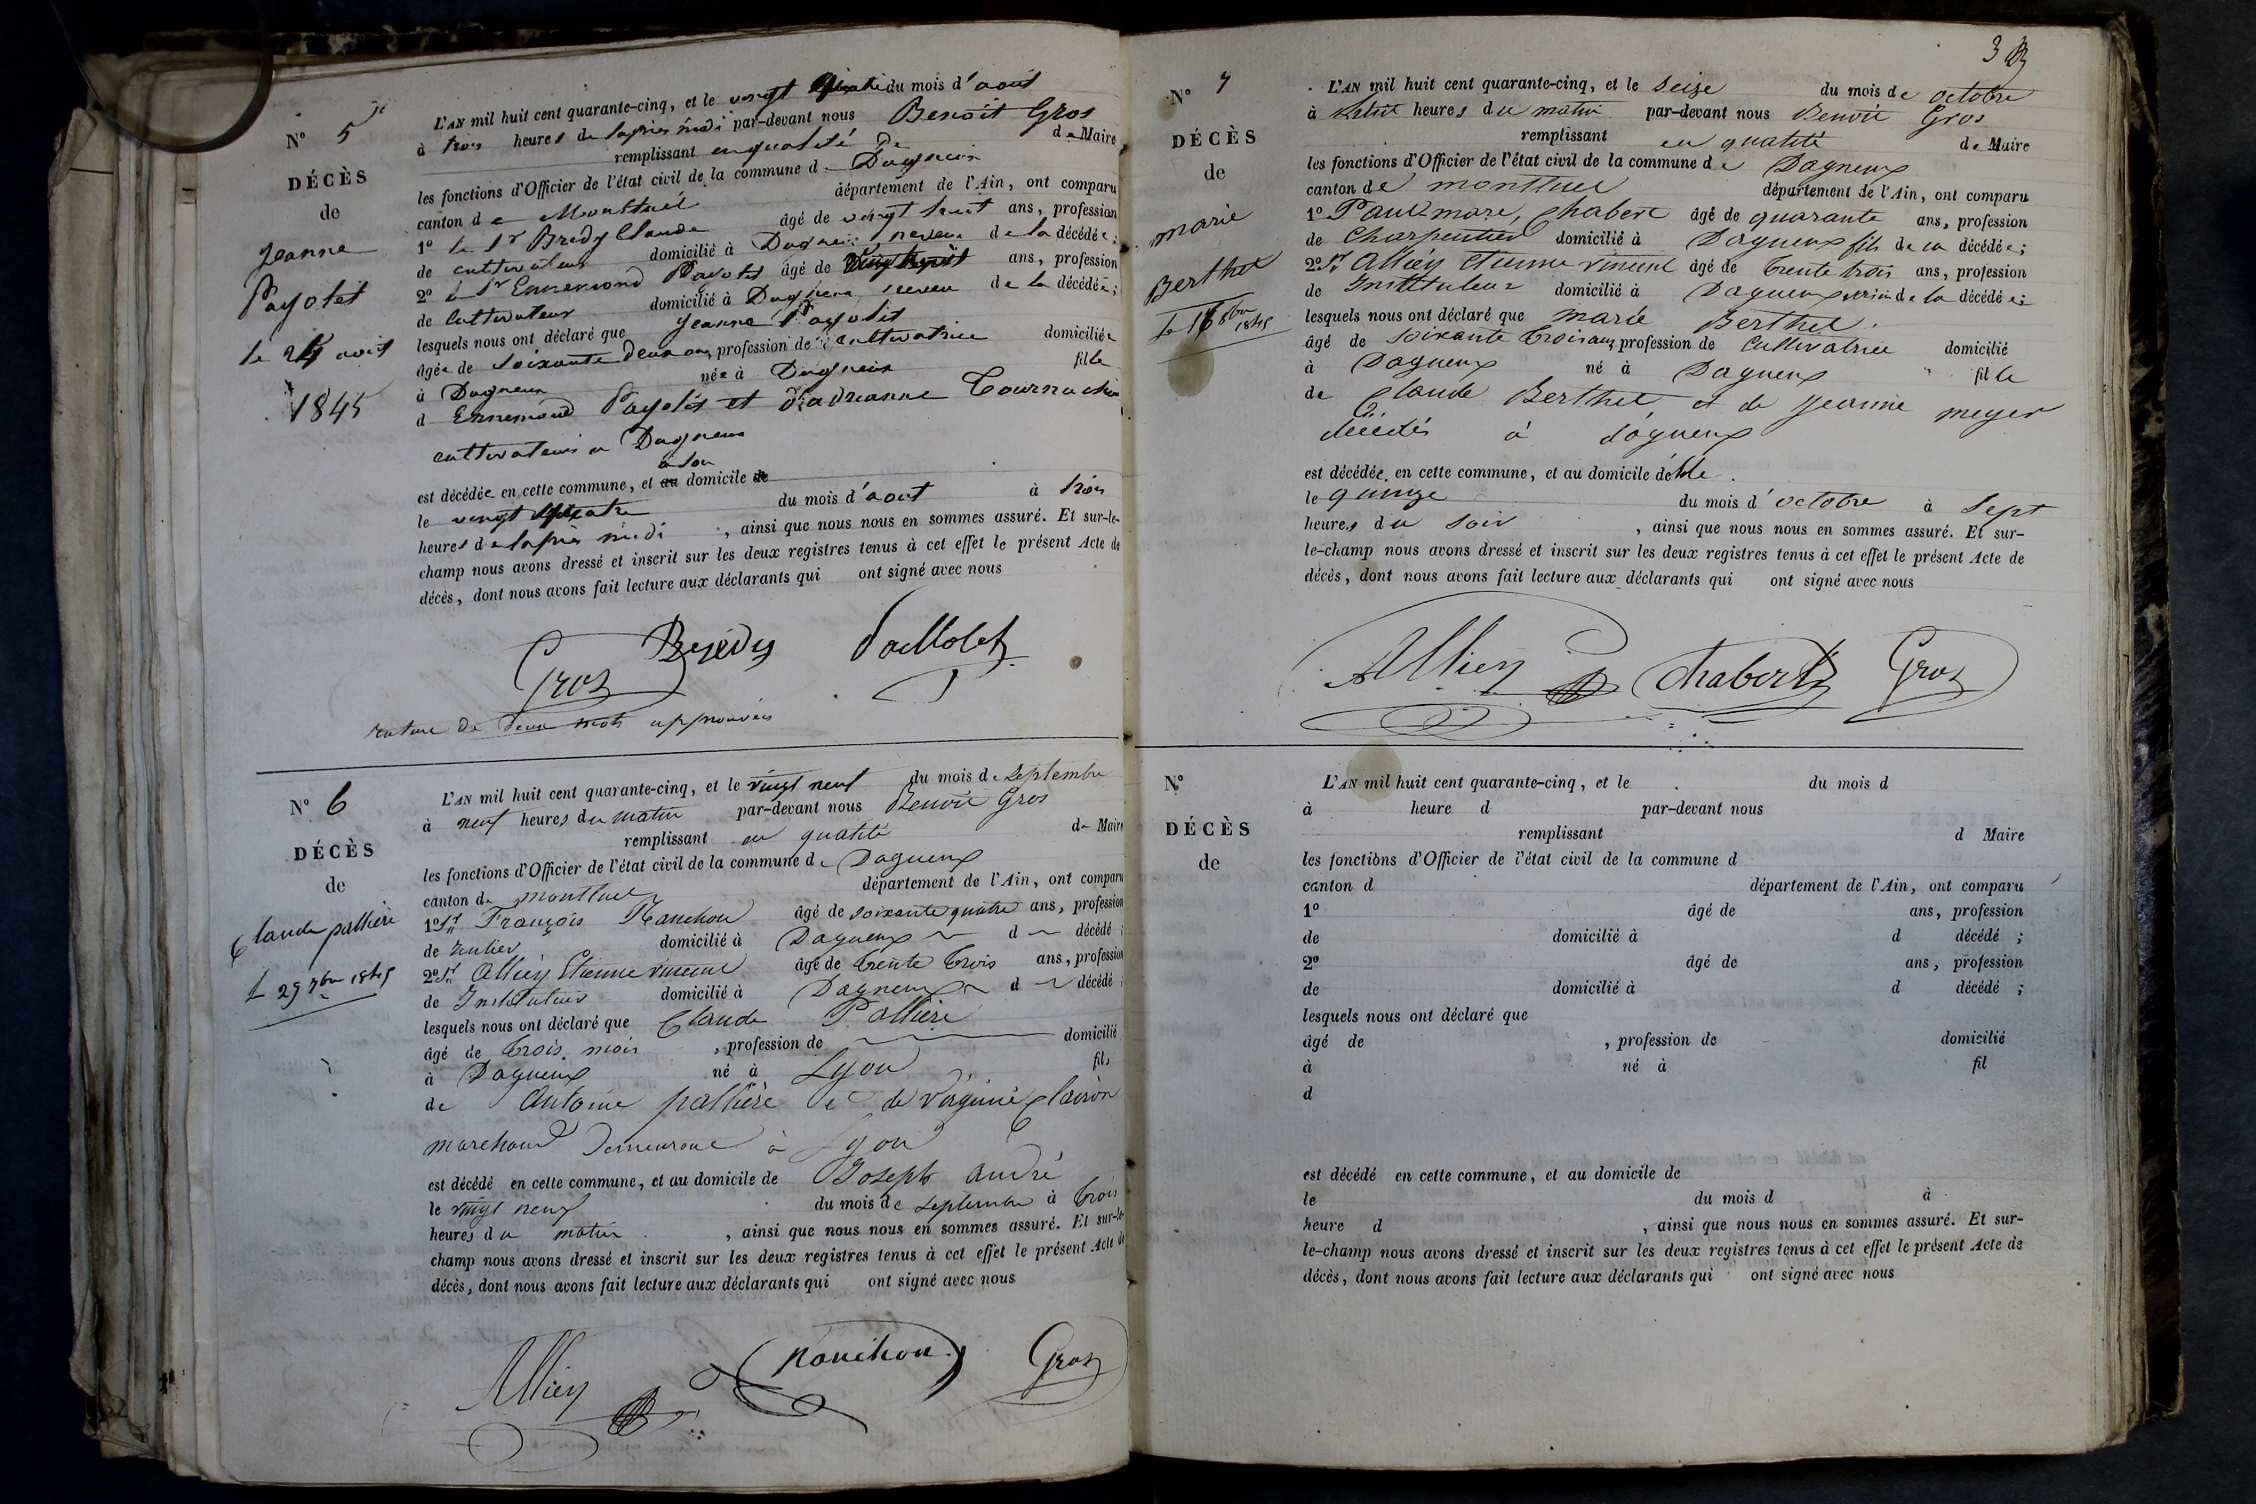 N° 5
DÉCÈS
de
Jeanne
Payolet
le 24 août
1845
L'AN mil huit cent quarante-cinq, et le vingt quatre du mois d'août
à trois heures de laprès midi par-devant nous Benoît Gros
remplissant en qualité de de Maire
les fonctions d'Officier de l'état civil de la commune d Dagneux
canton de Montluel département de l'Ain, ont comparu
1° le Sr Bredy Claude âgé de vingt huit ans, profession
de cultivateur domicilié à Dagneux neveu de la décédée;
2° le Sr Ennemond Payolet âgé de ans, profession
de Cultivateur domicilié à Dagneux neveu de la décédée;
lesquels nous ont déclaré que Jeanne Payolet
âgée de soixante deux ans, profession de cultivatrice domiciliée
à Dagneux née à Dagneux fille
d Ennemond Payolet et d'adrianne
cultivateurs a Dagneux
a son
est décédée en cette commune, et au domicile de
le vingt quatre du mois d'aout à trois
heures de laprès midi, ainsi que nous nous en sommes assuré. Et sur-le-
champ nous avons dressé et inscrit sur les deux registres tenus à cet effet le présent Acte de
décès, dont nous avons fait lecture aux déclarants qui ont signé avec nous
Gros
rature de deux mots approuvée
N° 6
DÉCÈS
de
Claude pallière
L 29 7bre 1845
L'AN mil huit cent quarante-cinq, et le vingt neuf du mois de Septembre
à neuf heures du matin par-devant nous Benoît Gros
remplissant en qualité de Maire
les fonctions d'Officier de l'état civil de la commune de Dagneux
canton de montluel département de l'Ain, ont comparu
1° Sr François Planchon âgé de soixante quatre ans, profession
de rentier domicilié à Dagneux d décédé;
2° Sr Alliey Etienne vincent âgé de trente trois ans, profession
de Instituteur domicilié à Dagneux d décédé;
lesquels nous ont déclaré que Claude Pallière
âgé de trois mois, profession de domicilié
à Dagneux né à Lyon fils
de Antoine pallière et de Virginie Clairon
marchand demeurant à Lyon
est décédé en cette commune, et au domicile de Joseph andré
le vingt neuf du mois de septembre à trois
heures du matin, ainsi que nous nous en sommes assuré. Et sur-le-
champ nous avons dressé et inscrit sur les deux registres tenus à cet effet le présent Acte de
décès, dont nous avons fait lecture aux déclarants qui ont signé avec nous
Alliey Gros
3
N° 7
DÉCÈS
de
marie
Berthet
Le 16 8bre 1845
L'AN mil huit cent quarante-cinq, et le seize du mois de octobre
à heures du matin par-devant nous Benoît Gros
remplissant en qualité de Maire
les fonctions d'Officier de l'état civil de la commune de Dagneux
canton de montluel département de l'Ain, ont comparu
1° Paul marc Chabert âgé de quarante ans, profession
de Charpentier domicilié à Dagneux fils de la décédée;
2° Sr Alliey Etienne vincent âgé de trente trois ans, profession
de Instituteur domicilié à Dagneux voisin de la décédée;
lesquels nous ont déclaré que marie Berthet
âgé de soixante trois ans, profession de Cultivatrice domicilié
à Dagneux né à Dagneux fille
de Claude Berthet et de Jeanne meyer
décédés à dagneux
est décédée en cette commune, et au domicile d'elle
le quinze du mois d'octobre à Sept
heures du soir, ainsi que nous nous en sommes assuré. Et sur-
le-champ nous avons dressé et inscrit sur les deux registres tenus à cet effet le présent Acte de
décès, dont nous avons fait lecture aux déclarants qui ont signé avec nous
Alliey Chabert Gros
N°
DÉCÈS
de
L'AN mil huit cent quarante-cinq, et le du mois d
à heure d par-devant nous
remplissant d Maire
les fonctions d'Officier de l'état civil de la commune d
canton d département de l'Ain, ont comparu
1° âgé de ans, profession
de domicilié à d décédé ;
2° âgé de ans, profession
de domicilié à d décédé ;
lesquels nous ont déclaré que
âgé de , profession de domicilié
à né à fil
d
est décédé en cette commune, et au domicile de
le du mois d à
heure d , ainsi que nous nous en sommes assuré. Et sur-
le-champ nous avons dressé et inscrit sur les deux registres tenus à cet effet le présent Acte de
décès, dont nous avons fait lecture aux déclarants qui ont signé avec nous